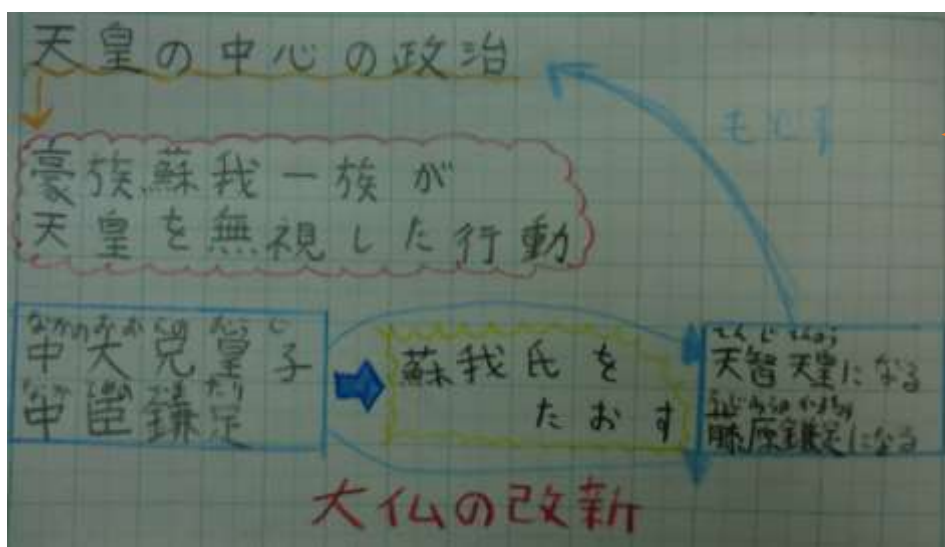 天皇の中心の政治
もどす
豪族蘇我一族が
天皇を無視した行動
なかのおおえのおうじ
中大兄皇子
なかとみのかまたり
中臣鎌足
蘇我氏を
たおす
てんじてんのう
天智天皇になる
ふじわらのかまたり
藤原鎌足になる
大仏の改新